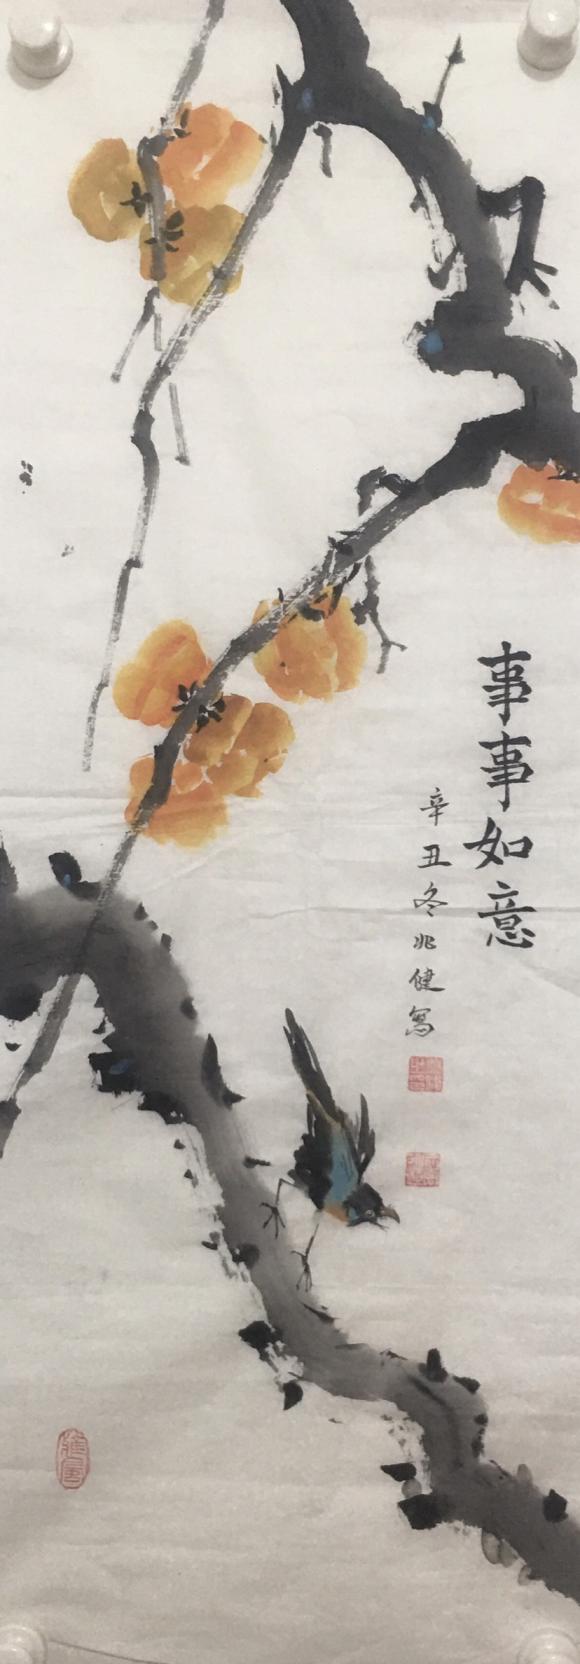 事事如意
辛丑冬兆健写